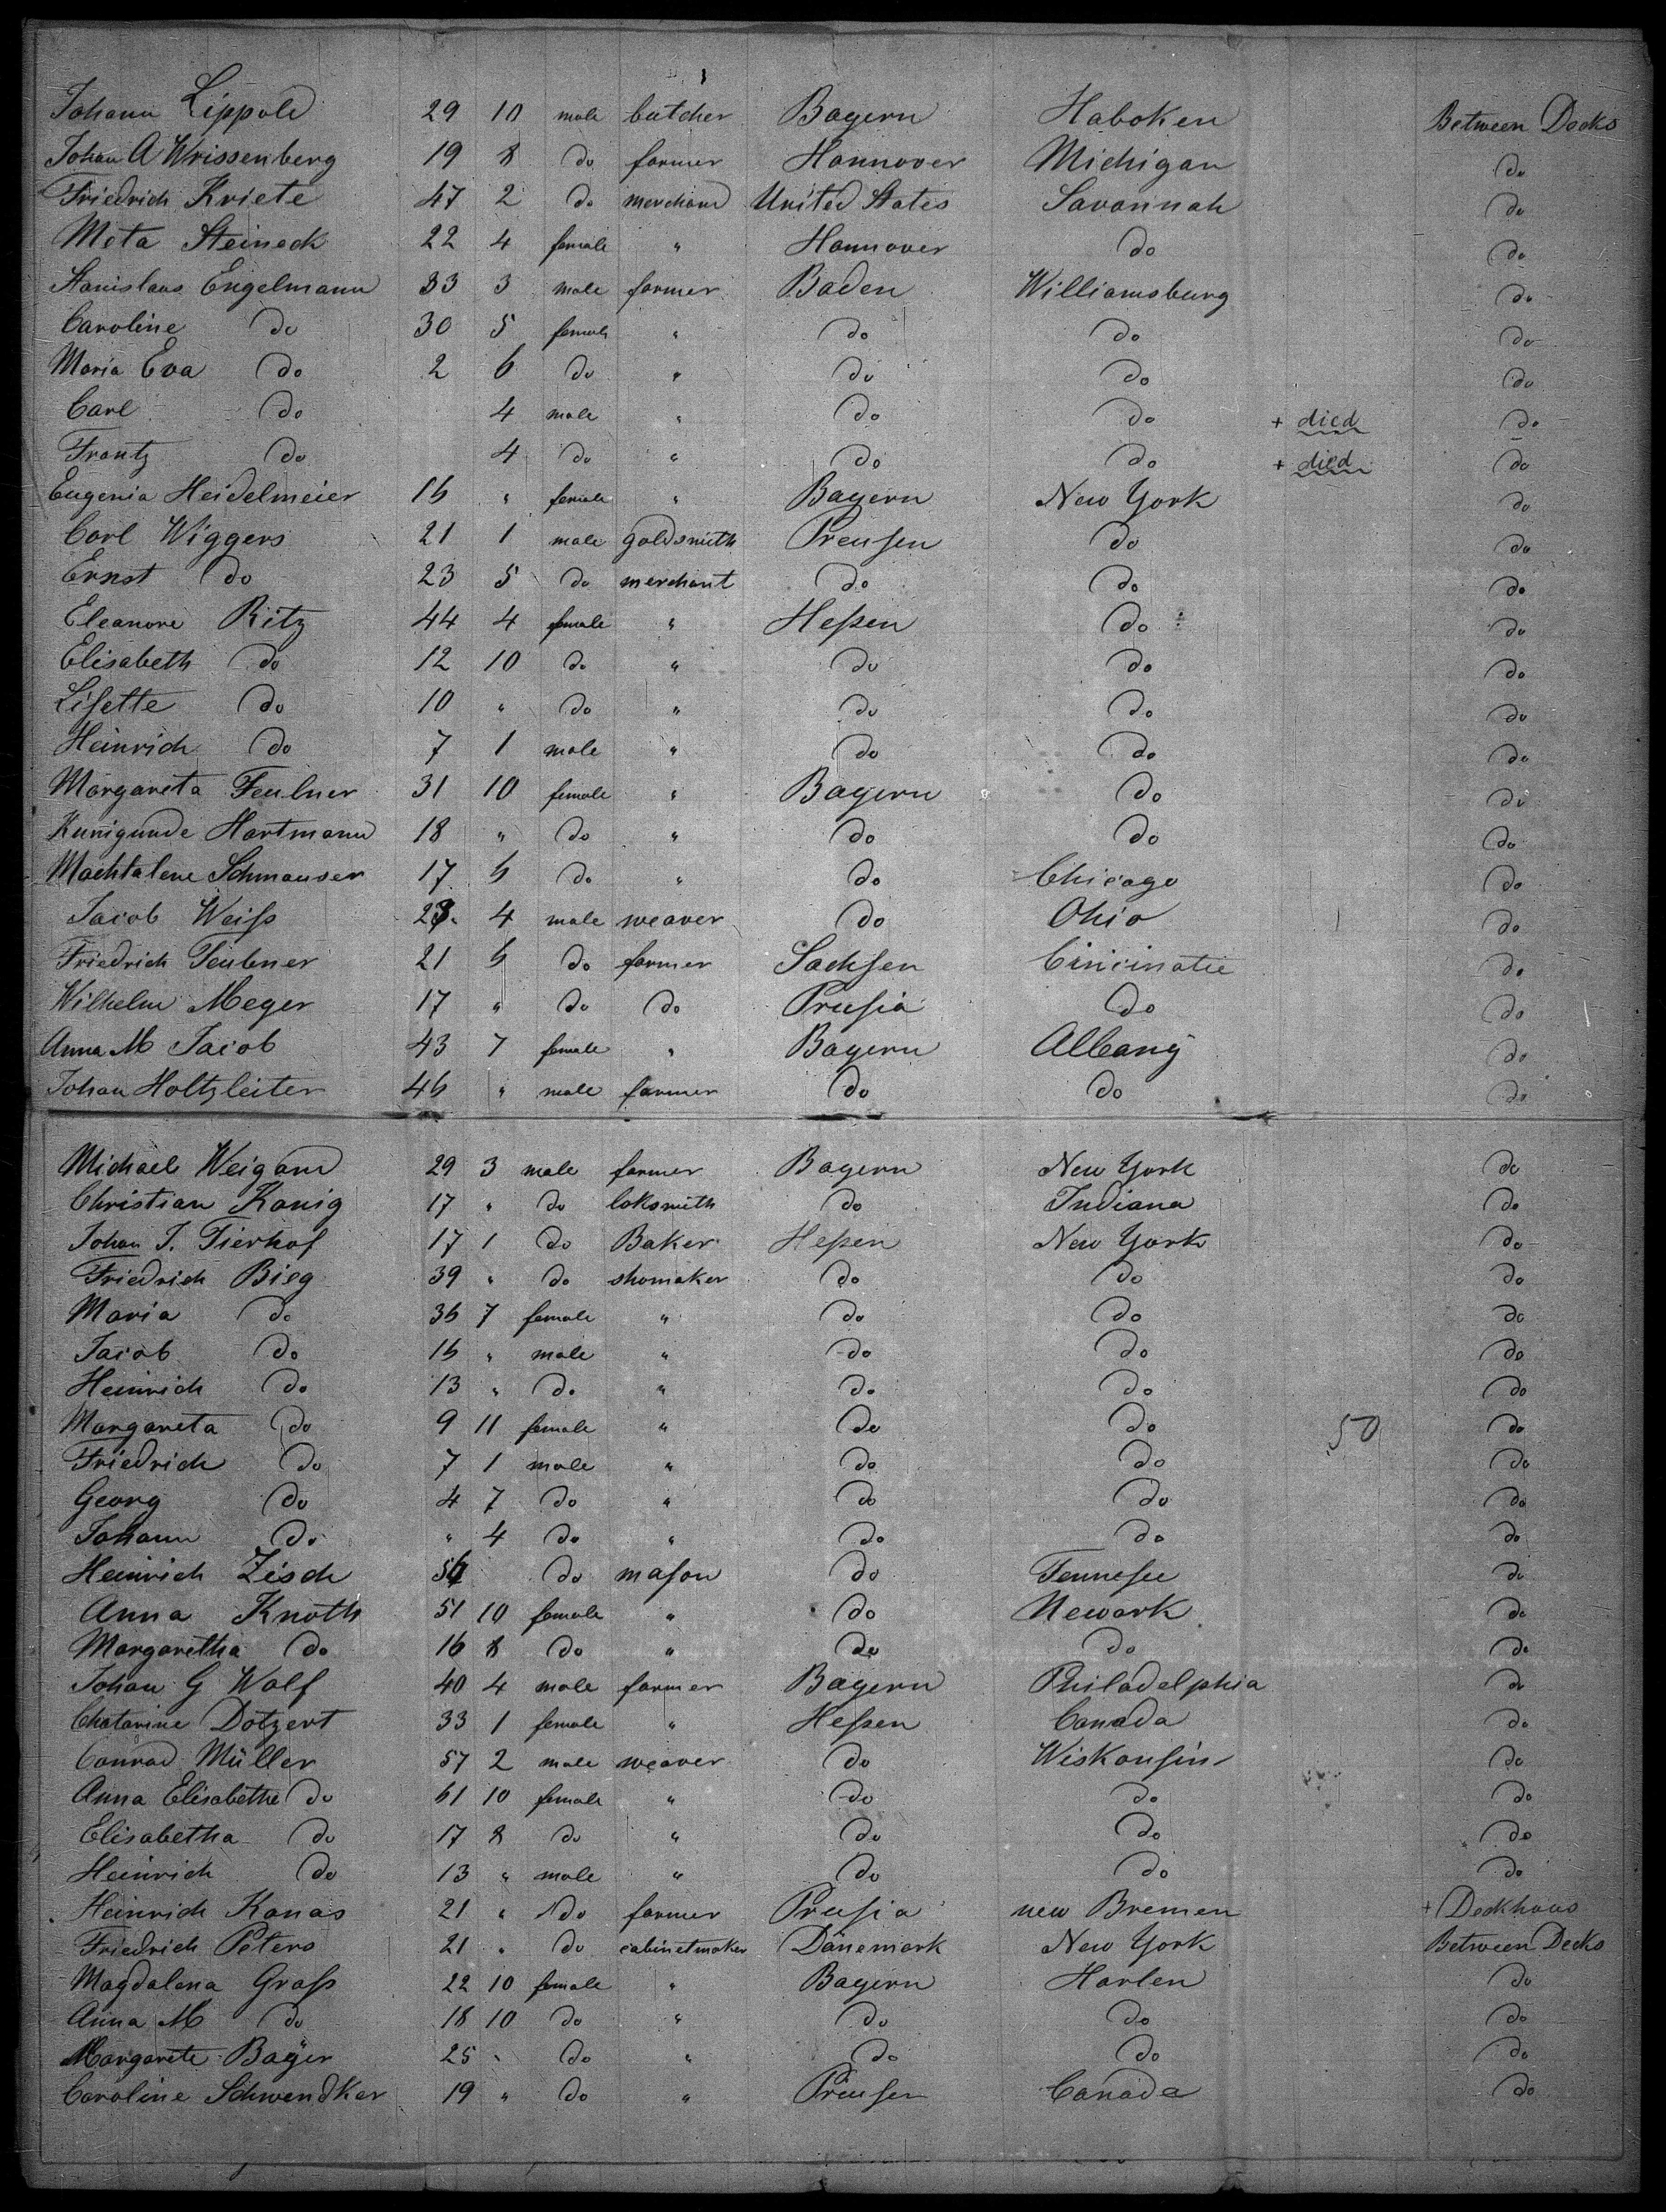 Johann Lippold 29 10 male butcher Bayern Haboken Between Decks
Johan A Wrissenberg 19 8 do farmer Hannover Michigan do
Friedrich Kriete 47 2 do merchand United States Savannah do
Meta Steineck 22 4 female " Hannover do do
Stanislaus Engelmann 33 3 male farmer Baden Williamsburg do
Caroline do 30 5 female " do do do
Maria Eva do 2 6 do " do do do
Carl do 4 male " do do + died do
Frantz do 4 do " do do + died do
Eugenia Heidelmeier 16 " female " Bayern New York do
Carl Wiggers 21 1 male goldsmith Preusen do do
Ernst do 23 5 do merchant do do do
Eleanore Ritz 44 4 female " Heßen do do
Elisabeth do 12 10 do " do do do
Lisette do 10 " do " do do do
Heinrich do 7 1 male " do do do
Margareta Feulner 31 10 female " Bayern do do
Kunigunde Hartmann 18 " do " do do do
Machtalene Schmauser 17 6 do " do Chicago do
Jacob Weiss 4 male weaver do Ohio do
Friedrich Teubner 21 6 do farmer Sachsen Cincinatie do
Wilhelm Meyer 17 " do do Prusia do do
Anna M Jacob 43 7 female " Bayern Albany do
Johan Holtzleiter 46 " male farmer do do do
Michael Weigand 29 3 male farmer Bayern New York do
Christian Konig 17 " do loksmith do Indiana do
Johan J. Tierhof 17 1 do Baker Heßen New York do
Friedrich Bieg 39 " do shomaker do do do
Maria do 36 7 female " do do do
Jacob do 16 " male " do do do
Heinrich do 13 " do " do do do
Margareta do 9 11 female " do do 50 do
Friedrich do 7 1 male " do do do
Georg do 4 7 do " do do do
Johann do " 4 do " do do do
Heinrich Zisch do mason do Tennesee do
Anna Knoth 51 10 female " do Newark do
Margaretha do 16 8 do " do do do
Johan G Wolf 40 4 male farmer Bayern Philadelphia do
Chatarine Dotzert 33 1 female " Heßen Canada do
Conrad Müller 57 2 male weaver do Wiskonsin do
Anna Elisabethe do 61 10 female " do do do
Elisabetha do 17 8 do " do do do
Heinrich do 13 " male " do do do
Heinrich Konas 21 " do farmer Prusia new Bremen + Deckhous
Friedrich Peters 21 " do cabinetmaker Dänemark New York Between Decks
Magdalena Grass 22 10 female " Bayern Harlen do
Anna M do 18 10 do " do do do
Margarete Bayer 25 " do " do do do
Caroline Schwendker 19 " do " Preusen Canada do